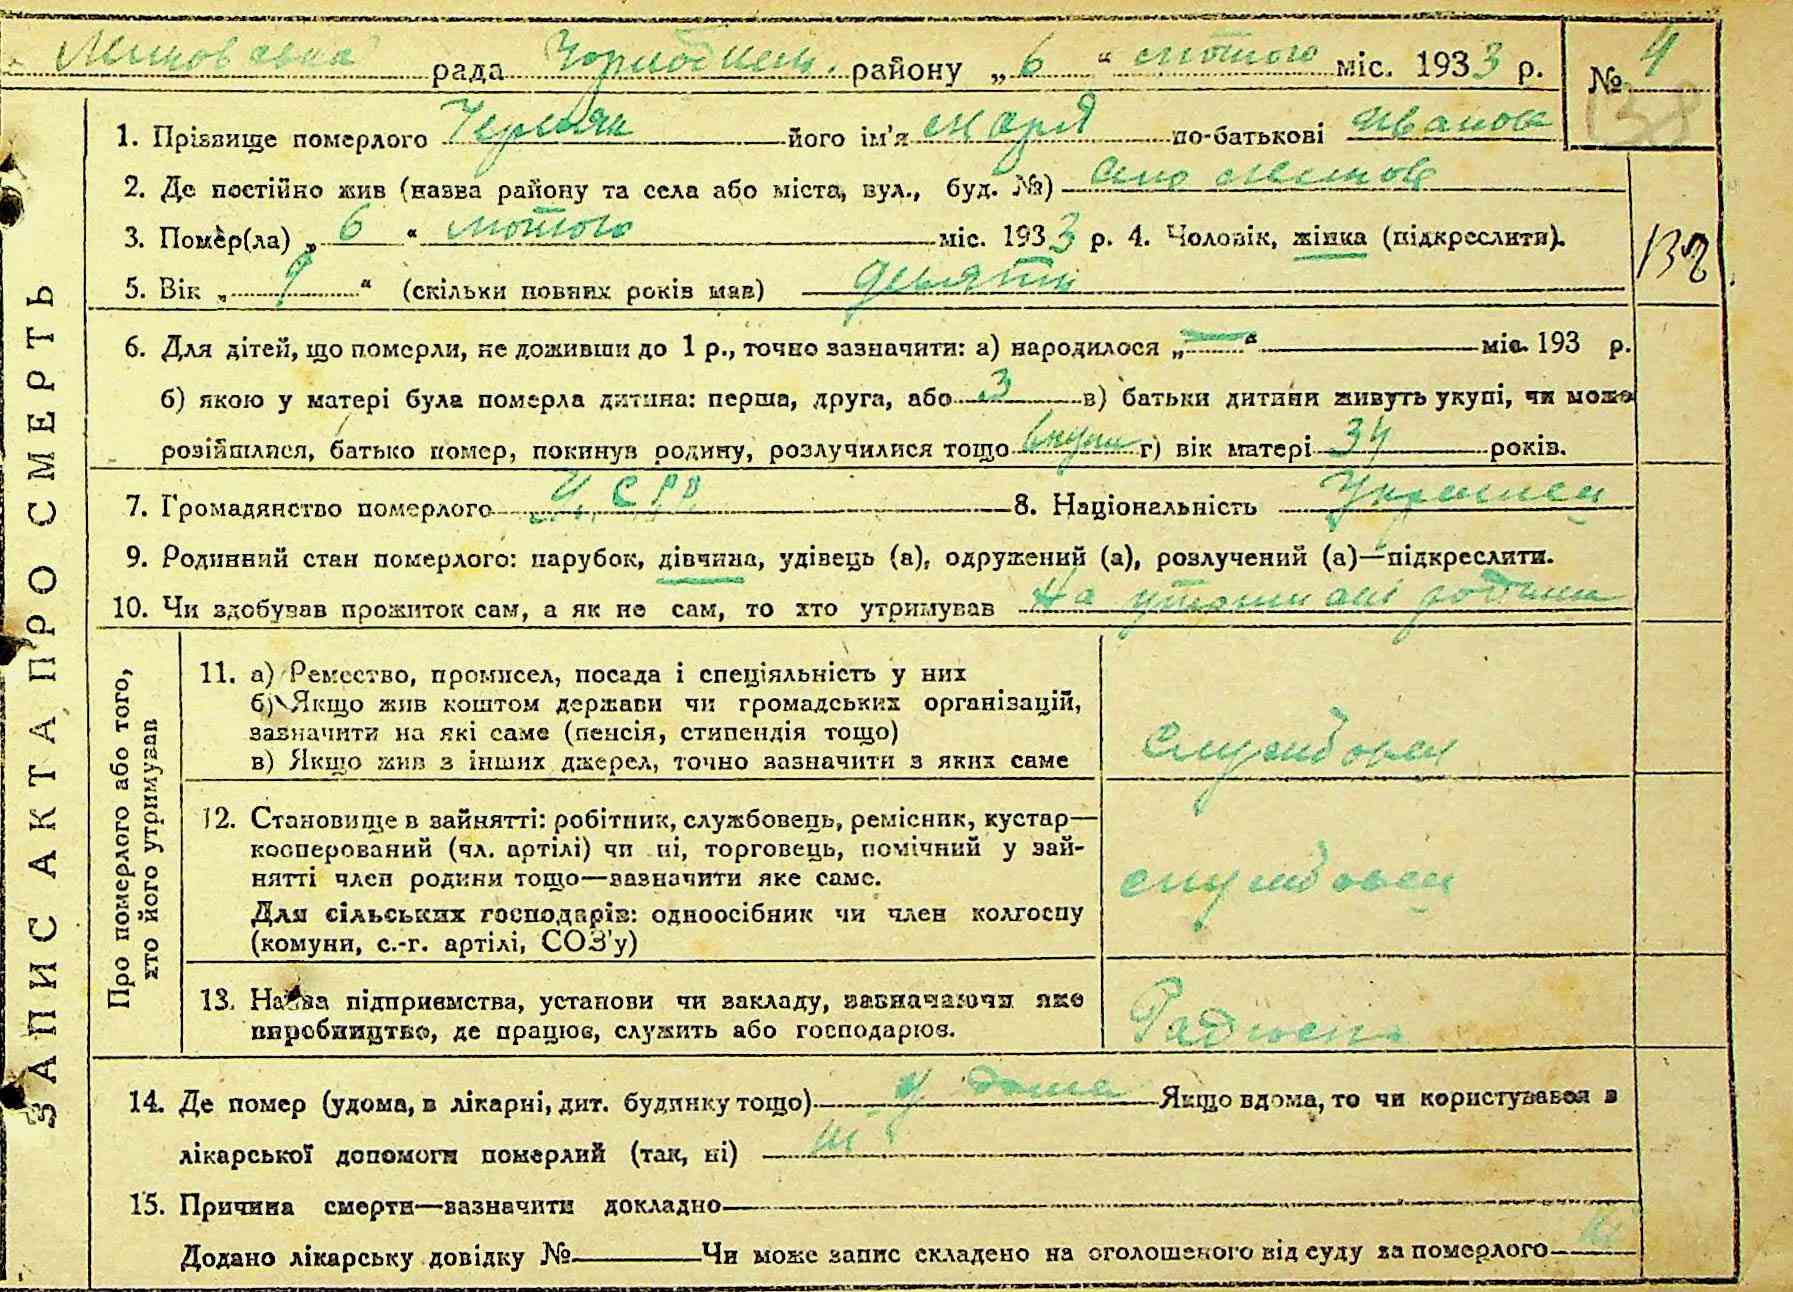 рада Чорнобильськ. району „6“ лютого міс. 1933 р. № 4
138
1. Прізвище померлого його ім'я Марія по-батькові Іванов
2. Де постійно жив (назва району та села або міста, вул., буд. №) село
3. Помер(ла) „6“ лютого міс. 1933 р. 4. Чоловік, жінка (підкреслити).
138
5. Вік „9“ (скільки повних років мав) девять
6. Для дітей, що померли, не доживши до 1 р., точно зазначити: а) народилося „ “ міс. 193 р.
б) якою у матері була померла дитина: перша, друга, або 3 в) батьки дитини живуть укупі, чи може
розійшлися, батько помер, покинув родину, розлучилися тощо вкупі г) вік матері 34 років.
7. Громадянство померлого УСРР 8. Національність Українец
9. Родинний стан померлого: парубок, дівчина, удівець (а), одружений (а), розлучений (а)—підкреслити.
10. Чи здобував прожиток сам, а як не сам, то хто утримував На утриманні родини
ЗАПИС АКТА ПРО СМЕРТЬ
Про померлого або того,
хто його утримував
11. а) Ремество, промисел, посада і спеціяльність у них
б) Якщо жив коштом держави чи громадських організацій,
зазначити на які саме (пенсія, стипендія тощо)
в) Якщо жив з інших джерел, точно зазначити з яких саме
12. Становище в зайнятті: робітник, службовець, ремісник, кустар—
кооперований (чл. артілі) чи ні, торговець, помічний у зай-
нятті член родини тощо—зазначити яке саме.
службовец
Для сільських господарів: одноосібник чи член колгоспу
(комуни, с.-г. артілі, СОЗ'у)
13. Назва підприємства, установи чи закладу, зазначаючи яке
виробництво, де працює, служить або господарює.
14. Де помер (удома, в лікарні, дит. будинку тощо) у дома Якщо вдома, то чи користувався з
лікарської допомоги померлий (так, ні) ні
15. Причина смерти—зазначити докладно
Додано лікарську довідку № Чи може запис складено на оголошеного від суду за померлого ні